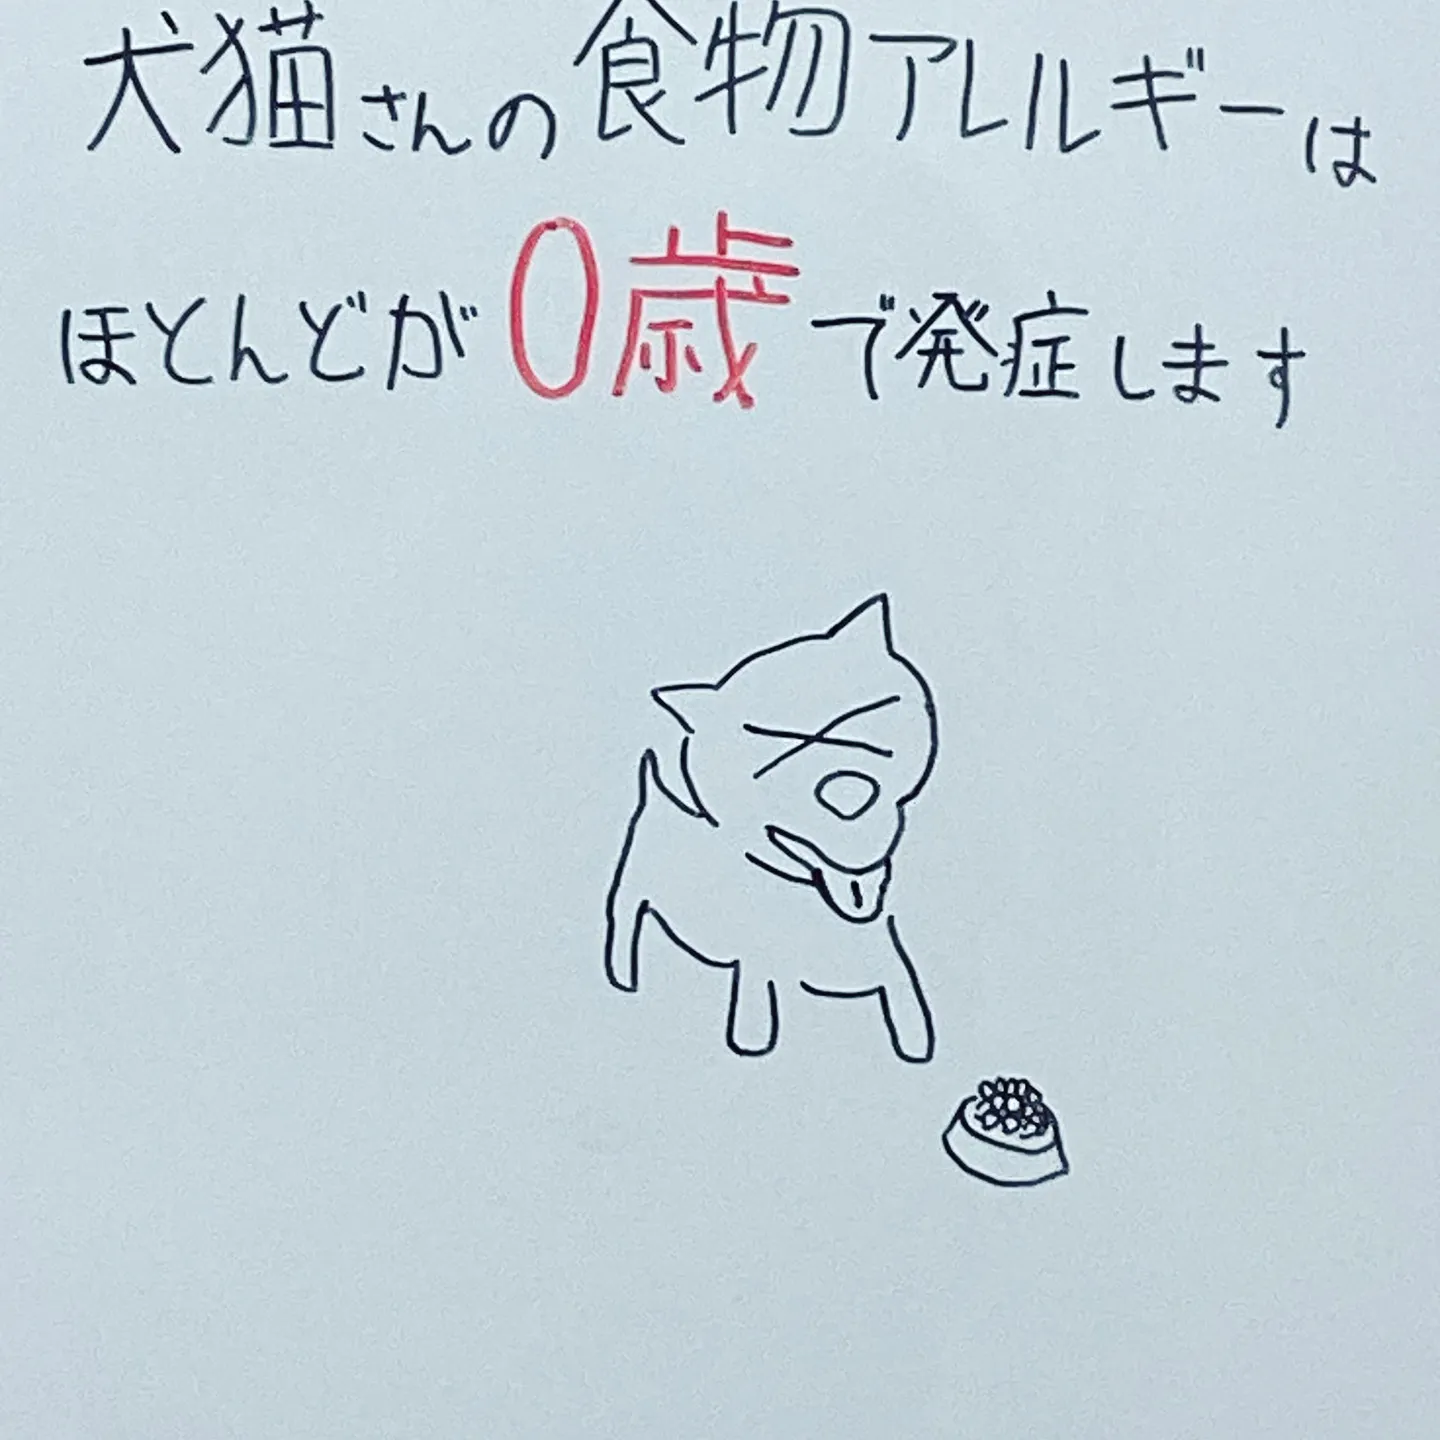 犬猫さんの食物アレルギーは
ほとんどが0歳で発症します